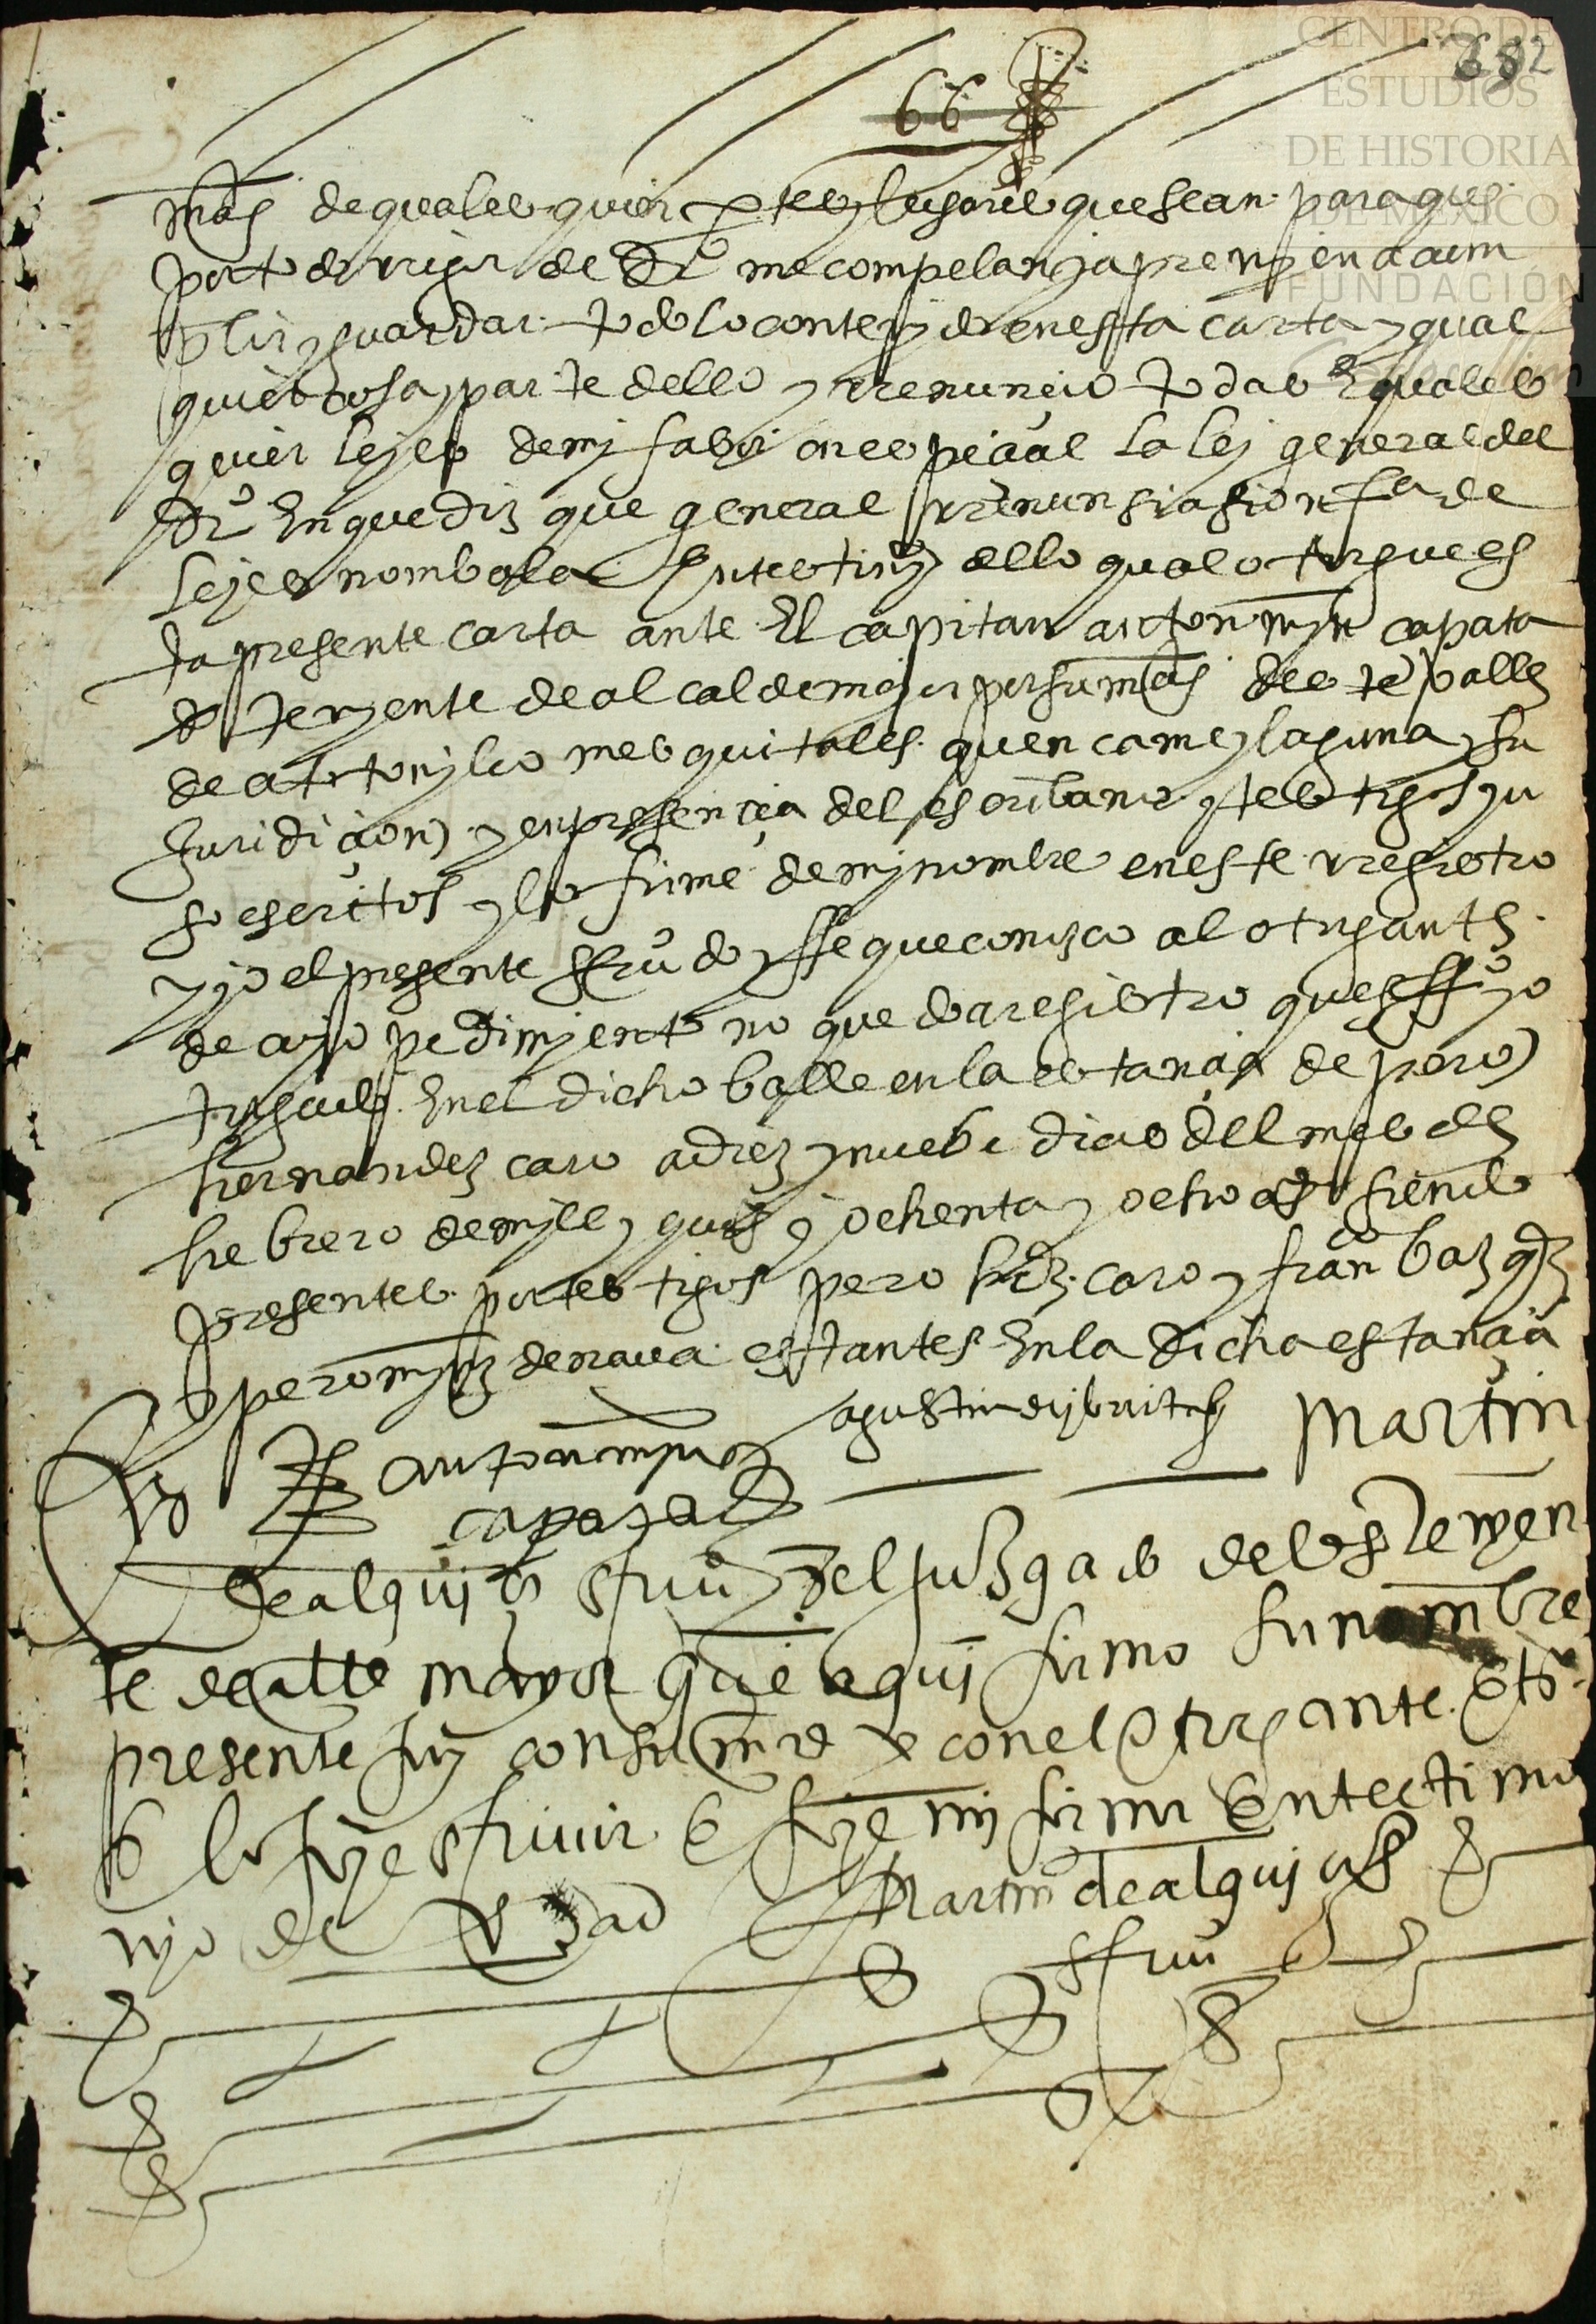 CENTRO DE
ESTUDIOS
DE HISTORIA
DE MEXICO
FUNDACIÓN
66
mag de qualesquier ptes y lugares que sean para que
por todo rrigor de dro me compelan y apremyen a cum
plir y guardar todo lo contenydo en esta carta y qual
quier cosa y parte dello y rrenuncio todas e quales
quier leyes de my fabor en especial la ley general del
dro en que diz que general rrenunsiasion fa de
leyes nom bala en testimo dello qual otorgue es
ta presente carta ante el capitan anton myn capata
de tenyente de alcalde mayor por su mag deste valle
de atotonylco mesquitales quencame y laguna y su
juridiçion y en presençia del escribano y testigos yu
so escritos y lo firme de my nombre en este rregistro
y yo el presente scriuo doy ffe que conozco al otorgante
de cuyo pedimyento no quedo a registro ques ffo y o
torgado en el dicho balle en la estançia de pero
hernandez caro a diez y nuebe dias del mes de
hebrero de myll y quis y ochenta y ocho as siendo
presentes por testigos pero hrdz caro y franco bazqz
y pero mynz de naua estantes en la dicha estançia
agustin Martin
anton mynz
capata
de alquiza scriuo del juzgado del tenyen
te de allde mayor que aqui firmo su nombre
presente fuy con su mrd e con el otorgante e tos
e lo fize scriuir e fize mi firma en testimo
nyo de verdad
Martin de alquiza
scriuo